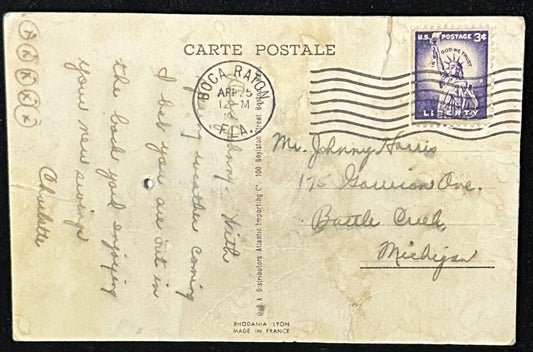 CARTE POSTALE
U.S. POSTAGE 3¢
IN GOD WE TRUST
LIBERTY
BOCA RATON
APR 25
12 M
FLA.
Johnny - With
spring weather coming
I bet you are out in
the back yard enjoying
your new swings
Charlotte
x x x x x
Mr. Johnny Harris
175 Garrison Ave.
Battle Creek,
Michigan
U.S.A. Distributors Atlantic Importing Co. 100 Boylston Street Boston
RHODANIA LYON
MADE IN FRANCE